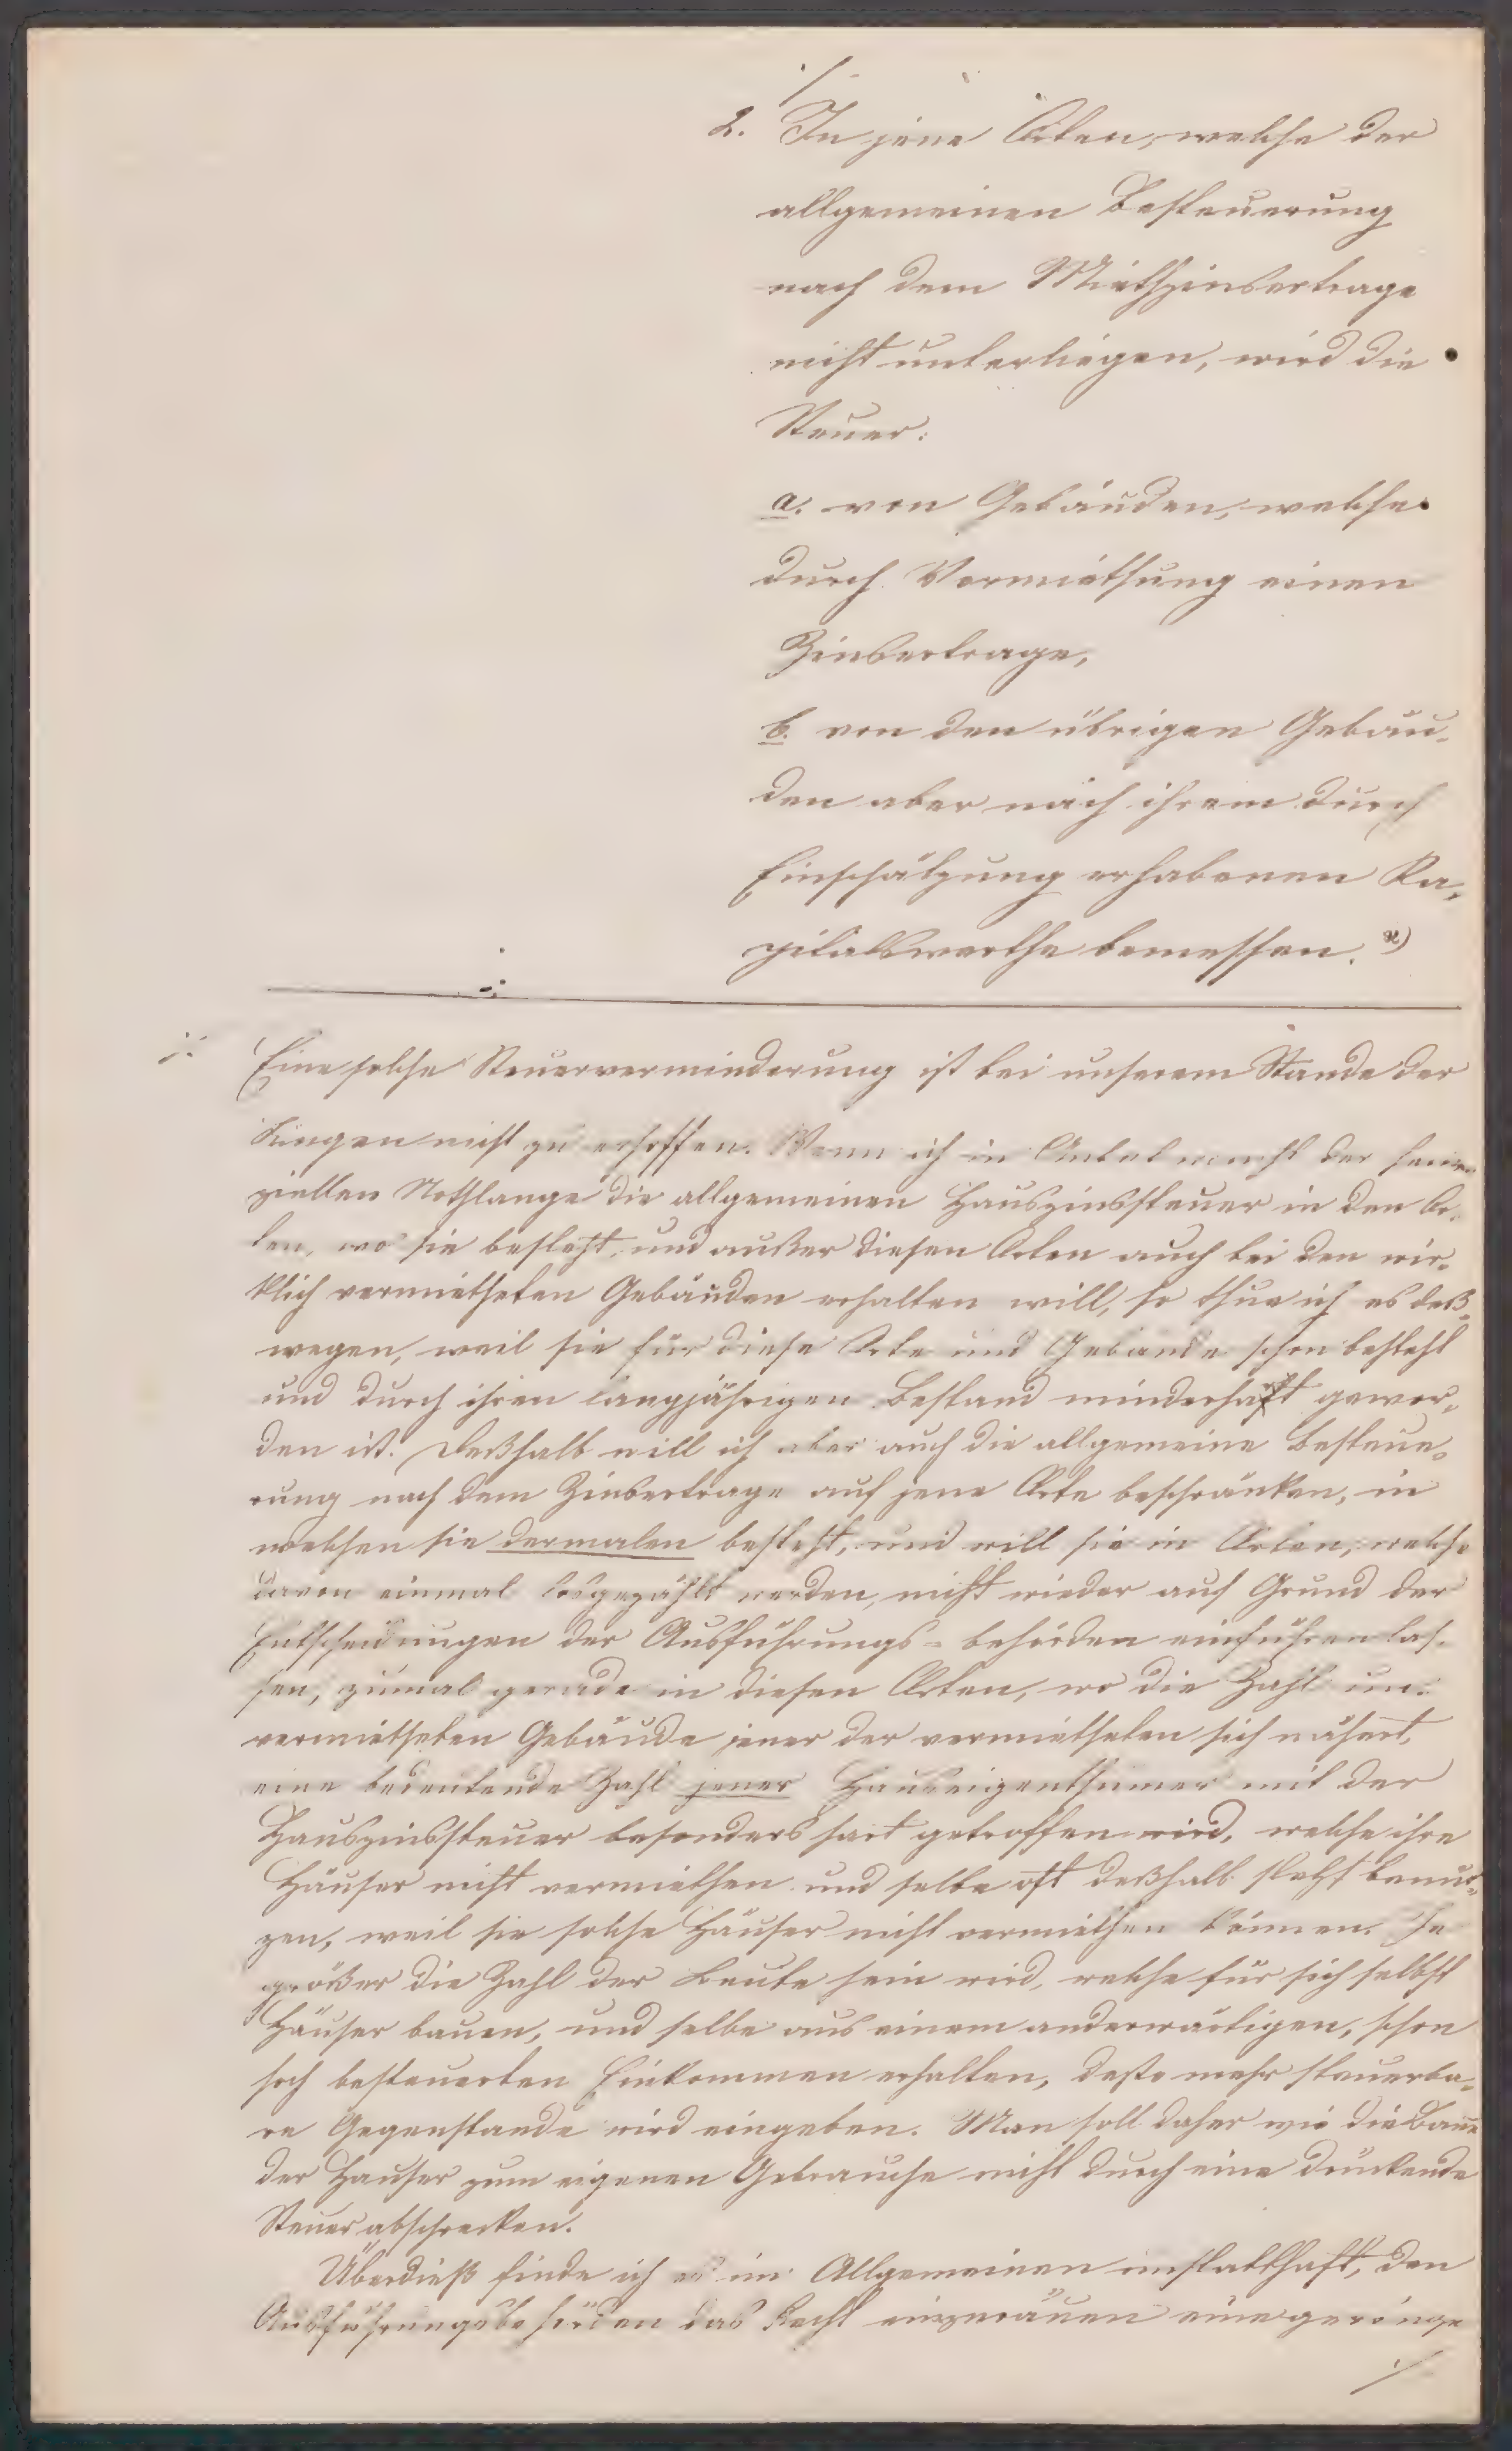 ./.
2. In jene Orten, welche der
allgemeinen Besteuerung
nach dem Miethzinsertrage
nicht unterliegen, wird die
Steuer:
a. von Gebäuden, welche
durch Vermiethung einen
Zinsertrage,
b. von den übrigen Gebäu-
den aber nach ihrem durch
Einschätzung erhabenen Ka-
pitalswerthe bemessen. *)
./. Eine solche Steuerverminderung ist bei unserem Stande der
Dingen nicht zu erhoffen. Wenn ich in der
ziellen Nothlange die allgemeinen Hauszinssteuer in den Or-
ten, wo sie besteht, und außer diesen Orten auch bei den wir-
klich vermietheten Gebäuden erhalten will, so thue ich es deß-
wegen, weil sie für diese Orte und Gebäude schon besteht
und durch ihren langjährigen Bestand minderhaft gewor-
den ist. Deßhalb will ich aber auch die allgemeine Besteue-
rung nach dem Zinsertrage auf jene Orte beschränken, in
welchen sie dermalen besteht, und will sie in Orten, welche
davon einmal losgezählt werden, nicht wieder auf Grund der
Entscheidungen der Ausführungs-behörden einführen las-
sen, zumal gerade in diesen Orten, wo die Zahl un-
vermietheten Gebäude jener der vermietheten sich nähert,
eine bedeutende Zahl jener Hauseigenthümer mit der
Hauszinssteuer besonders hart getroffen wird, welche ihre
Häuser nicht vermiethen und selbe oft deßhalb selbst benut-
zen, weil sie solche Häuser nicht vermiethen können. Je
größer die Zahl der Leute sein wird, welche für sich selbst
Häuser bauen, und selbe aus einem anderwärtigen, schon
hoch besteuerten Einkommen erhalten, desto mehr steuerba-
re Gegenstande wird eingeben. Man soll daher wie die Baue
der Hauser zum eigenen Gebrauche nicht durch eine drückende
Steuer abschrecken.
Überdieß finde ich es im Allgemeinen unstatthaft, den
Ausführungsbehörden das Recht einzuräuen eine geringe
./.